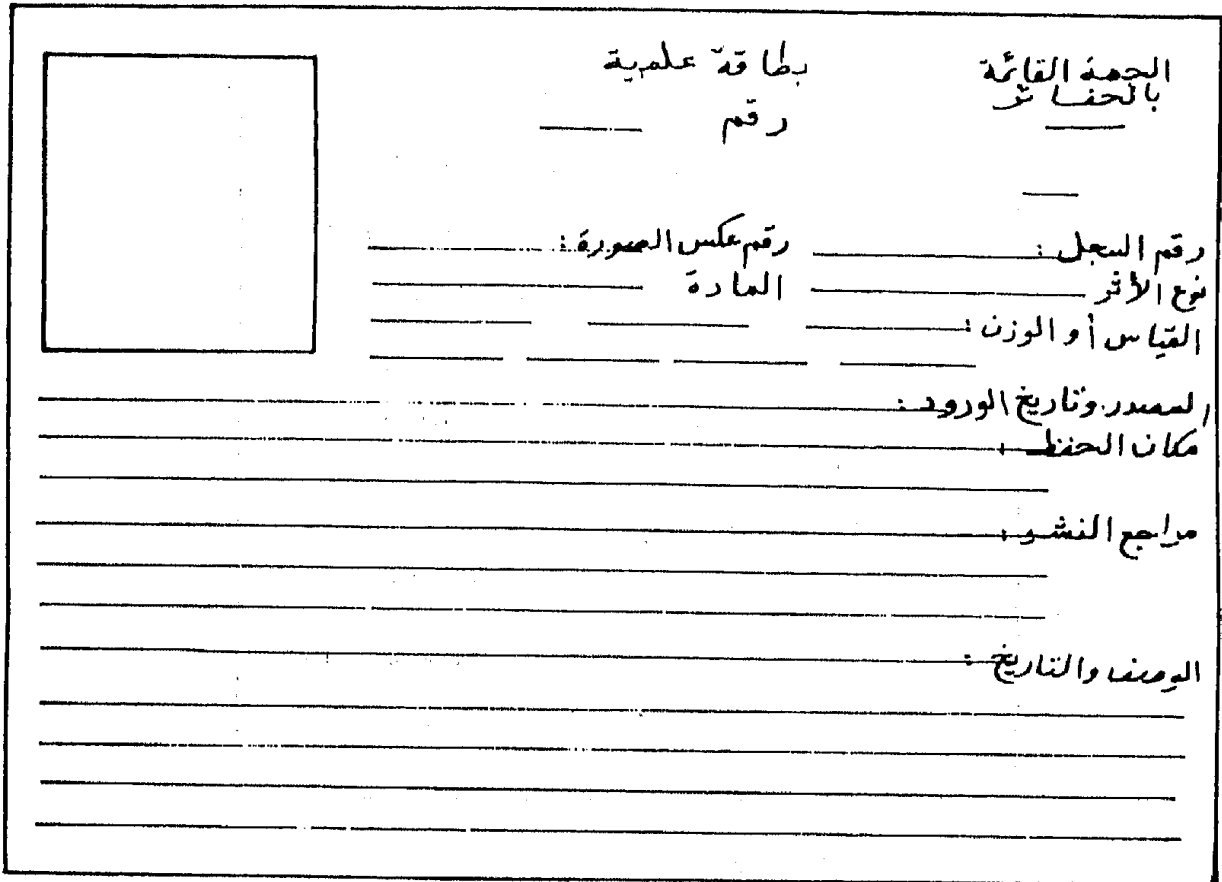 الجهة القائمة بطاقة علمية
بالحفائر
رقم
رقم السجل : رقم عكس الصورة :
نوع الأثر المادة
القياس أو الوزن :
المصدر وتاريخ الورود :
مكان الحفظ :
مراجع النشر :
الوصف والتاريخ :